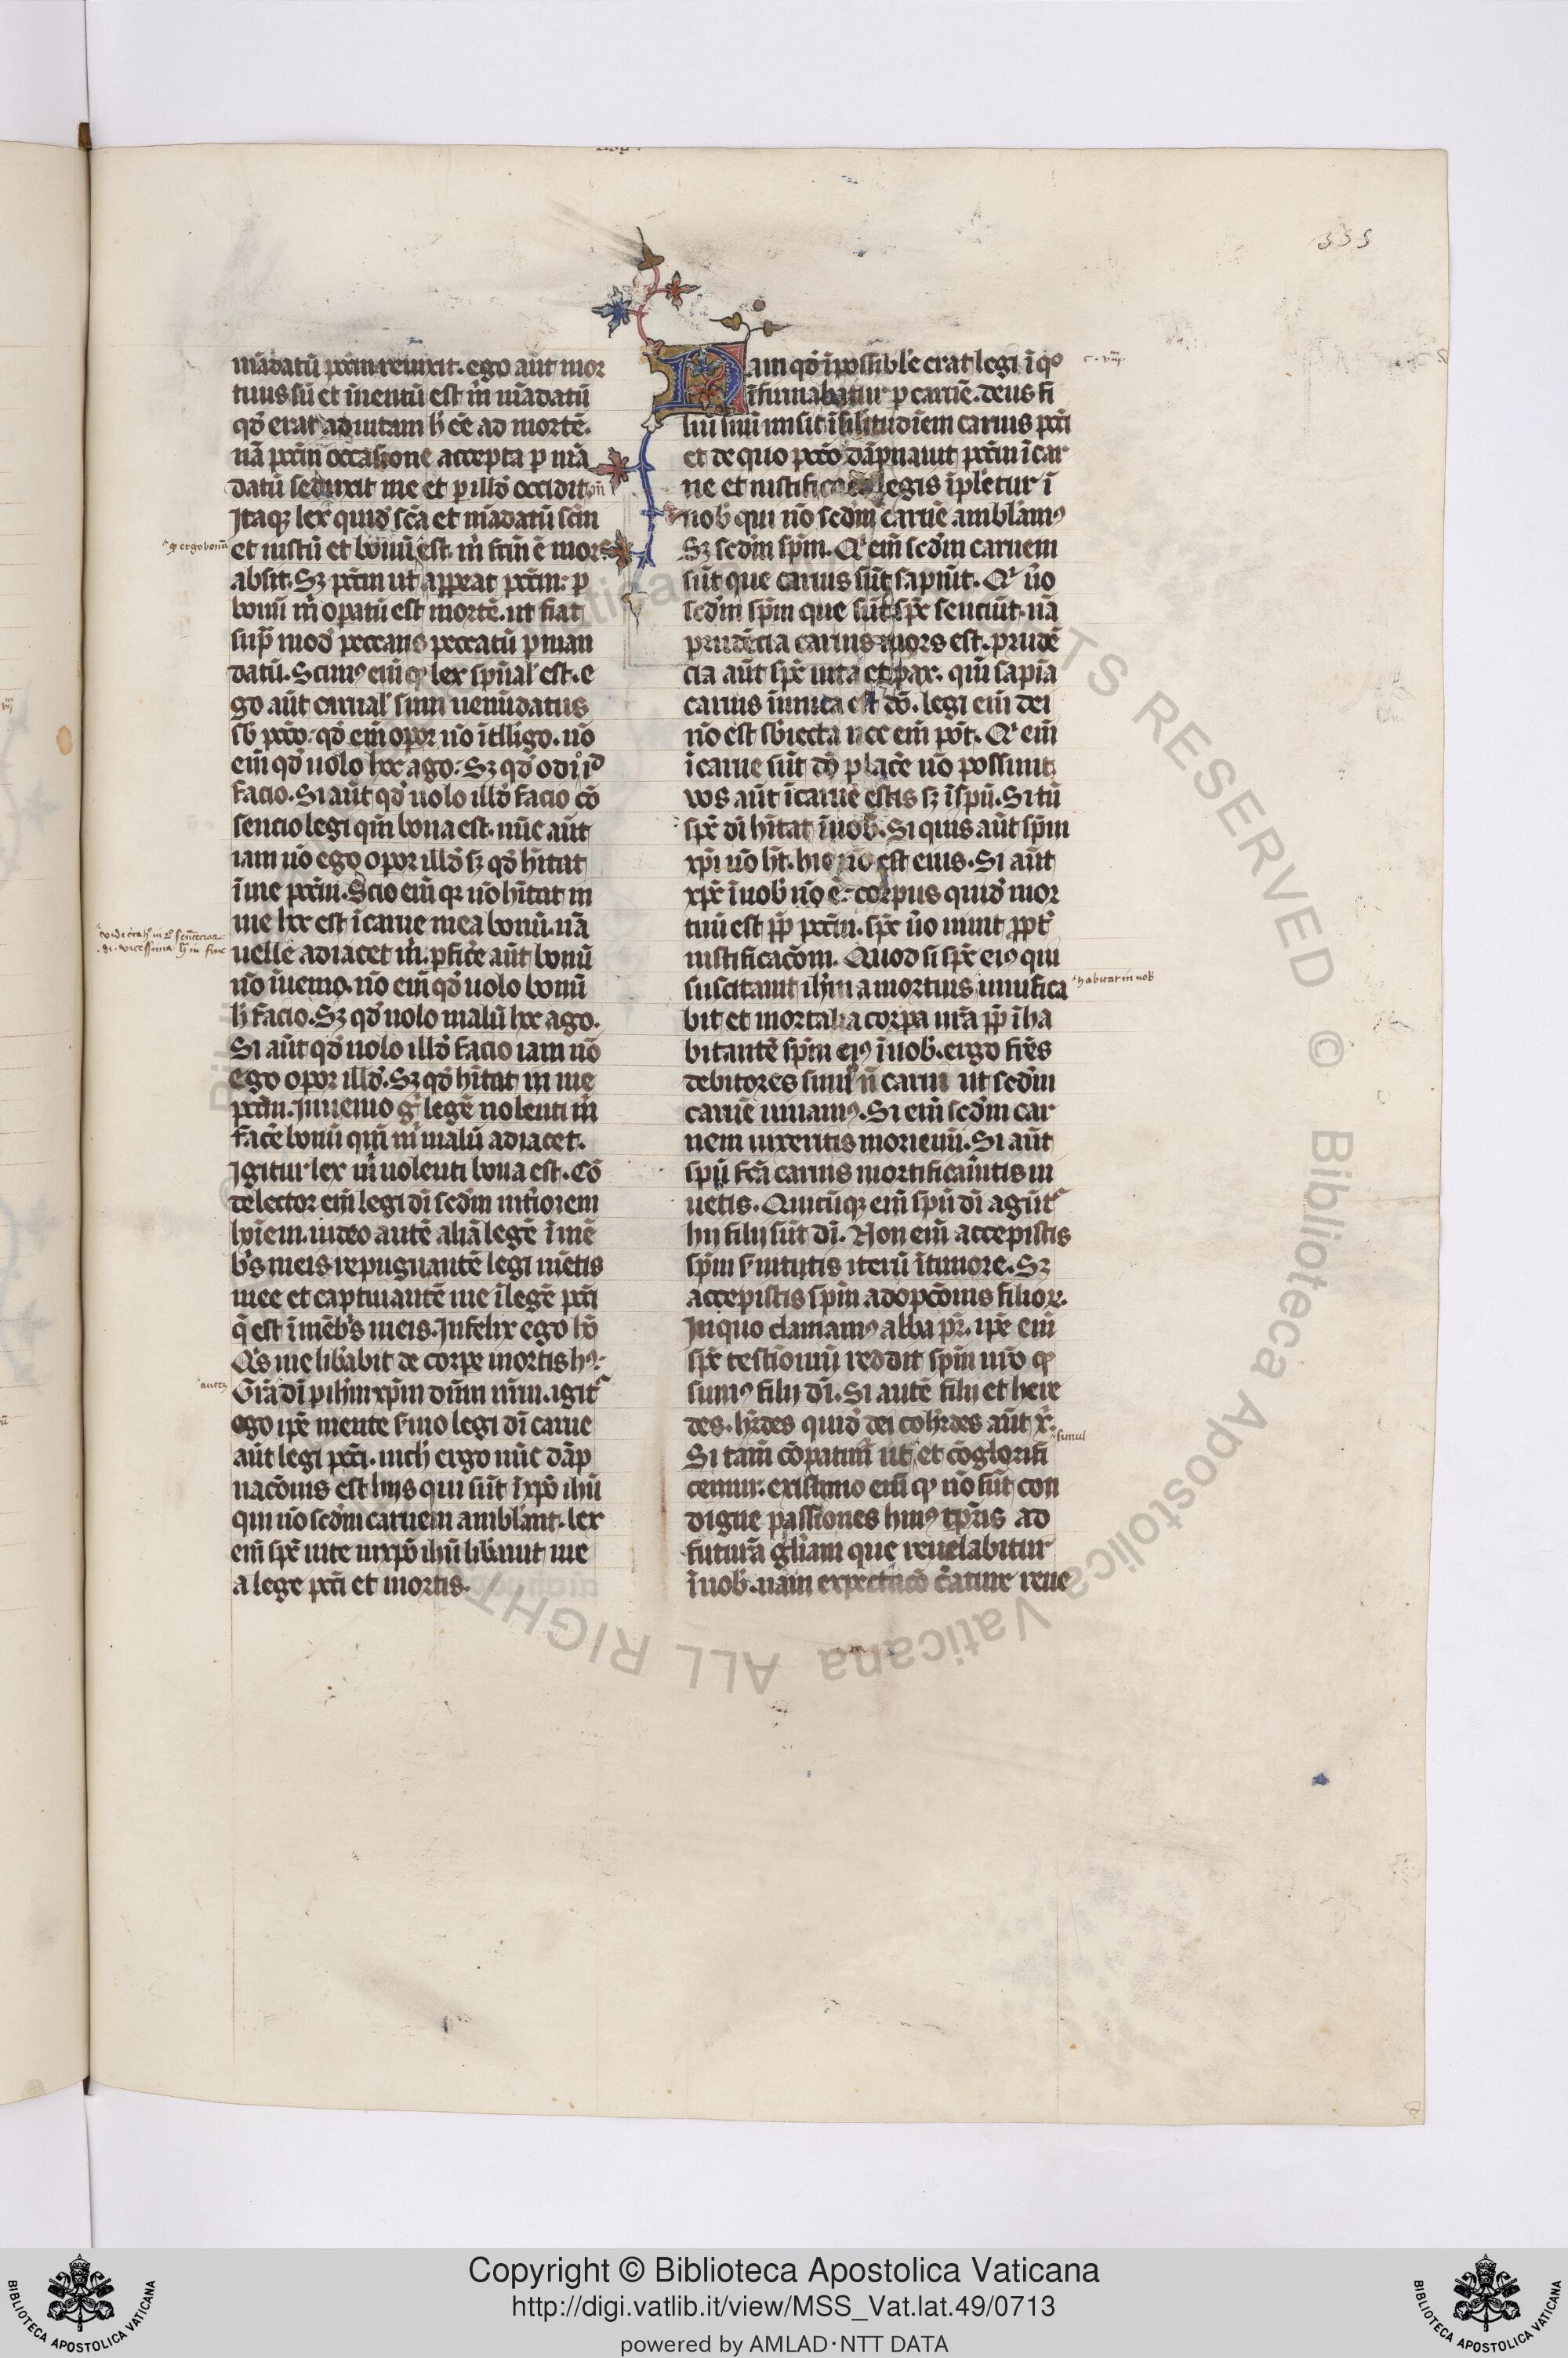 335
mādatū pctm̄ reuixit. ego aūt mor
tuus sū et inuentū est m̄ mādatū
qd̄ erat ad uitam h̄ eē ad mortē.
nā pctm̄ occasione accepta p mā
datū seduxit me et p illd̄ occidit
Itaqȝ lex quid̄ sc̄a et mādatū sc̄m
^q ergo bonū
et iustū et bonū est. m̄ fcm̄ ē mors
absit. Sȝ pctm̄ ut appeat pctm̄: p
bonū m̄ opatū est mortē. ut fiat
sup̄ mod̄ peccans peccatū p man
datū. Scimꝰ em̄ qꝫ lex sp̄ual' est. e
go aūt carnal' sum uenūdatus
sb̄ pctō. qd̄ em̄ opor nō ītlligo. nō
em̄ qd̄ uolo hoc ago: Sȝ qd̄ odi id
facio. Si aūt qd̄ nolo illd̄ facio cō
sencio legi qm̄ bona est. nūc aūt
iam nō ego opor illd̄ sȝ qd̄ hītat
ī me pctm̄. Scio em̄ qr nō hītat in
me hoc est ī carne mea bonū. nā
uelle adiacet m̄. pficē aūt bonū
nō īuenio. nō em̄ qd̄ uolo bonū
h̄ facio. Sȝ qd̄ nolo malū hoc ago.
Si aūt qd̄ nolo illd̄ facio iam nō
ego opor illd̄. Sȝ qd̄ hītat in me
pctm̄. Inuenio gͥ legē uolenti m̄
facē bonū qm̄ m̄ malū adiacet.
Igitur lex m̄ uolenti bona est. Cō
delector em̄ legi dī scdm̄ int̄iorem
hoīem. uideo autē aliā legē ī mē
bͥs meis repugnantē legi mētis
mee et captiuantē me ī legē pcti
q̄ est ī mēbͥs meis. Infelix ego hō
Qͥs me libabit de corpe mortis hꝰ:
autē
Grā dī p ihm̄ xpm̄ dnm̄ nrm̄. igit
ego ipē mente seruio legi dī carne
aūt legi pcti. nich' ergo nūc dāp
nacōnis est hijs qui sūt ī xpō ihū
qui nō scdm̄ carnem amblāt. lex
em̄ sp̄c uite in xpō ihū libauit me
a lege pcti et mortis.
Nam qd̄ īpossible erat legi ī qͦ
c. viij.
īfirmabatur p carnē. deus fi
liū suū misit ī silitudīem carnis pcti
et de quo pctō dāpnauit pctm̄ ī car
ne et iustificacō legis īpletur ī
nob̄ qui nō scdm̄ carnē amblāmꝰ
Sȝ scdm̄ spm̄. Qͥ em̄ scdm̄ carnem
sūt que carnis sūt sapiūt. Qͥ uō
scdm̄ spm̄ que sūt spc̄ senciūt. nā
prudēcia carnis mors est. prudē
cia aūt spc̄ uita et pax. qm̄ sapīa
carnis īimica est dō. legi em̄ dei
nō est sb̄iecta nec em̄ pōt. Qͥ em̄
ī carne sūt dō placē nō possunt
vos aūt ī carne estis sȝ ī spū. Si tn̄
spc̄ dī hītat ī uob̄. Si quis aūt spm̄
xpi nō ht̄. hic nō est eius. Si aūt
xpc̄ ī uob̄ nō ē: corpus quid̄ mor
tuū est pp̄ pctm̄. spc̄ uō uiuit pp̄t
iustificacōm. Quod si spc̄ eiꝰ qui
suscitauit ihm̄ a mortuis uiuifica
^habitat in uob̄
bit et mortalia corpa ura pp̄ īha
bitantē spm̄ eiꝰ ī uob̄. ergo frēs
debitores sumꝰ n̄ carni ut scdm̄
carnē uiuamꝰ. Si em̄ scdm̄ car
nem uixeritis moriem̄. Si aūt
spū fc̄a carnis mortificauitis ui
uetis. Quicūqȝ em̄ spū dī agūt
hij filij sūt dī. Non em̄ accepistis
spm̄ seruitutis iterū ī timore. Sȝ
accepistis spm̄ adopcōnis filior.
In quo clamamꝰ abba pr̄. ipē em̄
spc̄ testīoniū reddit spm̄ nrō qꝫ
sumꝰ filij dī. Si autē filij et here
des. hr̄des quid̄ dei cohr̄des aūt x̄.
^simul
Si tam̄ cōpatim̄ ut et cōglorifi
cemur. existimo em̄ qꝫ nō sūt con
digne passiones huiꝰ tp̄ris ad
futurā gliam que reuelabitur
ī nob̄. nam expectacō c̄ature reue
Copyright © Biblioteca Apostolica Vaticana
http://digi.vatlib.it/view/MSS_Vat.lat.49/0713
powered by AMLAD·NTT DATA
BIBLIOTECA APOSTOLICA VATICANA
BIBLIOTECA APOSTOLICA VATICANA